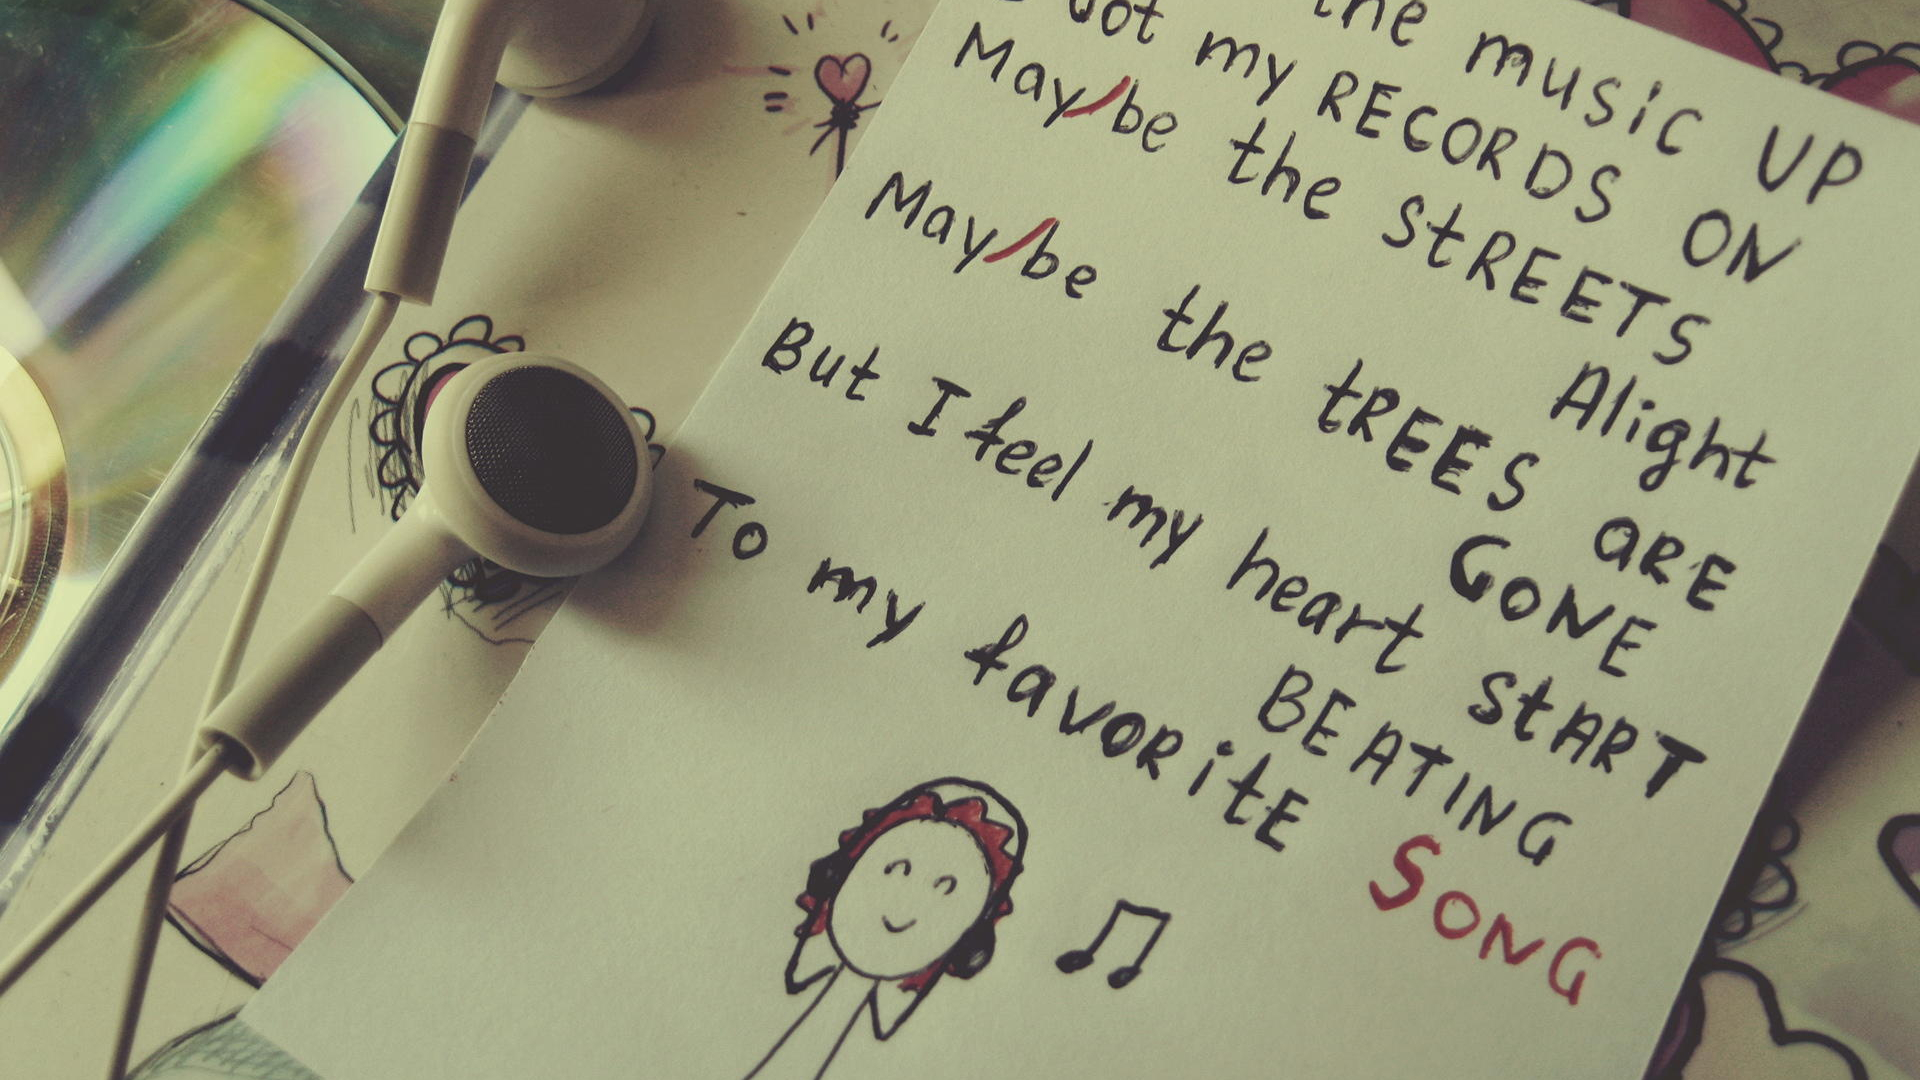 the music UP
got my RECORDS ON
May/be the StREETS
Alight
May/be the tREES aRE
GONE
But I feel my heart StART
BEATING
To my favoRitE SONG